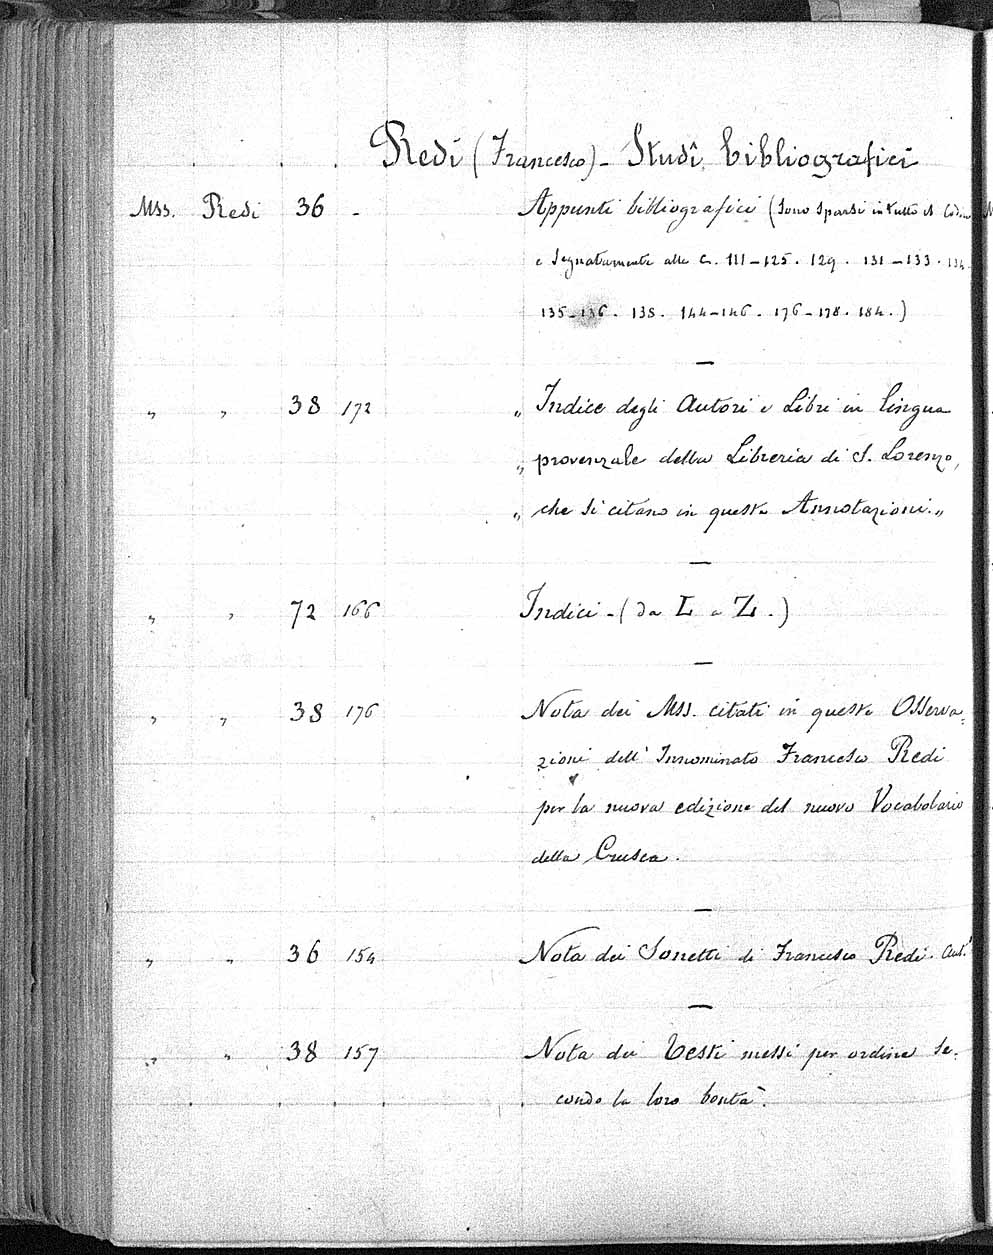 Redi (Francesco) - Studî bibliografici
Mss. Redi 36 - Appunti bibliografici (Sono sparsi in tutto il Codice
e segnatamente alle c. 111-125. 129. 131-133. 134.
135-136. 138. 144-146. 176-178. 184.)
" " 38 172 " Indice degli Autori e Libri in lingua
" provenzale della Libreria di S. Lorenzo,
" che si citano in queste Annotazioni."
" " 72 166 Indici - (da L a Z.)
" " 38 176 Nota dei Mss. citati in queste Osserva=
zioni dell' Innominato Francesco Redi
per la nuova edizione del nuovo Vocabolario
della Crusca.
" " 36 154 Nota dei Sonetti di Francesco Redi. Aut.
" " 38 157 Nota dei Testi messi per ordine se=
condo la loro bontà.